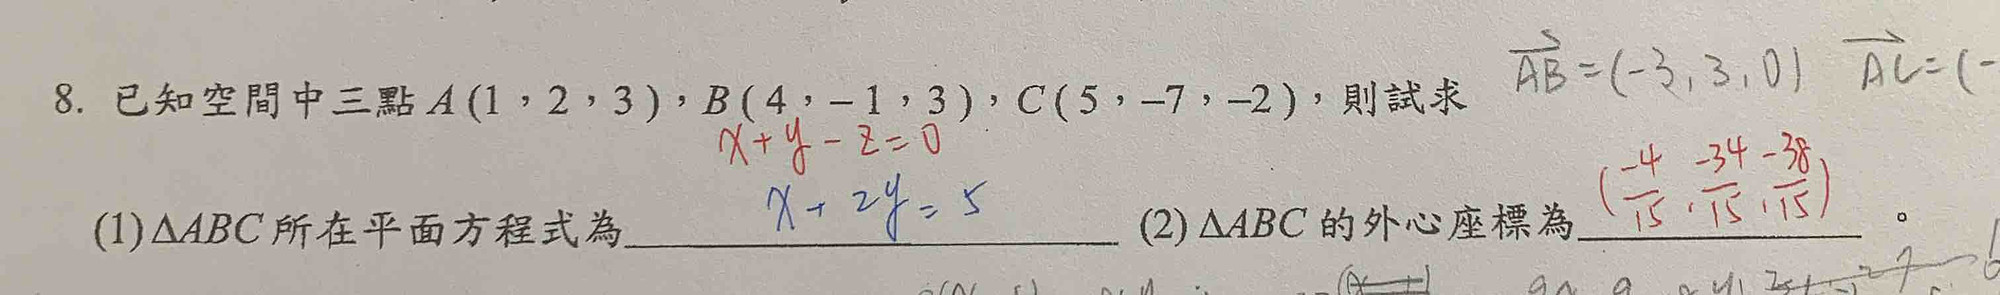 8. 已知空間中三點 A(1，2，3)，B(4，−1，3)，C(5，−7，−2)，則試求 AB=(-3,3,0) AC=(-
x+y-z=0
x+2y=5
(1)ΔABC 所在平面方程式為 (2)ΔABC 的外心座標為 (-4/15, -34/15, -38/15) 。